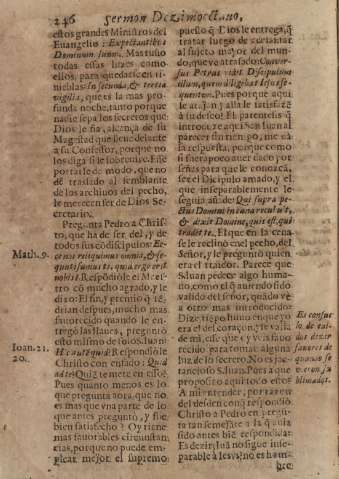 246 Sermon Dezimoctavo,
estos grandes Ministros del
Evangelio: Expectantibus
Dominum suum. Mas tuvo
todas estas luzes como
ellos, para quedarse en ti-
nieblas: In secunda, & tertia
vigilia, que es la mas pro-
funda noche, tanto porque
nadie sepa los secretos que
Dios le fia, alcança de su
Magestad que
a su Confessor, porque no
los diga si le Esse
portarse de modo, que no
dè traslado al semblante
de los archivos del pecho,
le merece ser de Dios Se-
cretario.
Pregunta Pedro a Chris-
to, que ha de ser del, y de
todos sus cõdiscipulos: Ec-
ce nos reliquimus omnia, & se-
quuti sumus te, quid ergo erit
nobis? Respõdiòle el Maes-
tro cõ mucho agrado, y le
dixo el fin, y premio q̃ tẽ-
drian despues, mucho mas
favorecido quando le en-
tregò las llaves, preguntò
esto mismo de solo S. Iuan:
Hic autẽ quid? Respondiòle
Christo con enfado: Quid
ad te? Què te mete en esso?
Pues quanto menos es lo
que pregunta aora, que no
es mas que vna parte de lo
que antes preguntò, y fue
bien satisfecho? Oy tiene
mas favorables circunstan-
cias, porque no puede em-
plear mejor el supremo
Math. 9.
Ioan. 21.
20.
puesto q̃ Dios le entrega, q̃
tratar luego de adelantar
al sujeto mejor del mun-
do, que ve atrasado: Conver-
sus Petrus vidit Discipulum
illum, quem diligebat Iesus se-
quentem. Pues porque aqui
le y alla le satisfaze
à su deseo? El parentesis q̃
introduze aqui S. Iuan al
parecer sin tiempo, me dà
la respuesta, porque como
si fuera poco aver dado por
señas para que le conozca,
ser el Dicipulo amado, y el
que inseparablemente le
seguia añade: Qui supra pe-
ctus Domini in cæna recubuit,
& dixit Domine, quis est, qui
tradet te. El que en la cena
se le reclinò en el pecho, del
Señor, y le preguntò quien
era el traidor. Parece que
S. Iuan pedia algo huma-
no, como el q̃ aviendo sido
valido del señor, quãdo vè
a otro mas introducido:
Dize: tiẽpo huvo en que yo
era el del coraçon, y se valia
de mi, esse que
recido para tomar alguna
luz de lo secreto. No es jac-
tancioso S. Iuan. Pues a que
proposito aqui todo esto?
A mi entender, portarse
el desden con q̃ respondiò
Christo a Pedro en pregũ-
ta tan semejãte a la q̃ avia
sido antes bien respondida:
Es dezir, Iuã no sigue inse-
parable à Iesus? no es huma-
Es
de vali-
dos dezir
favores de
quando se
veen